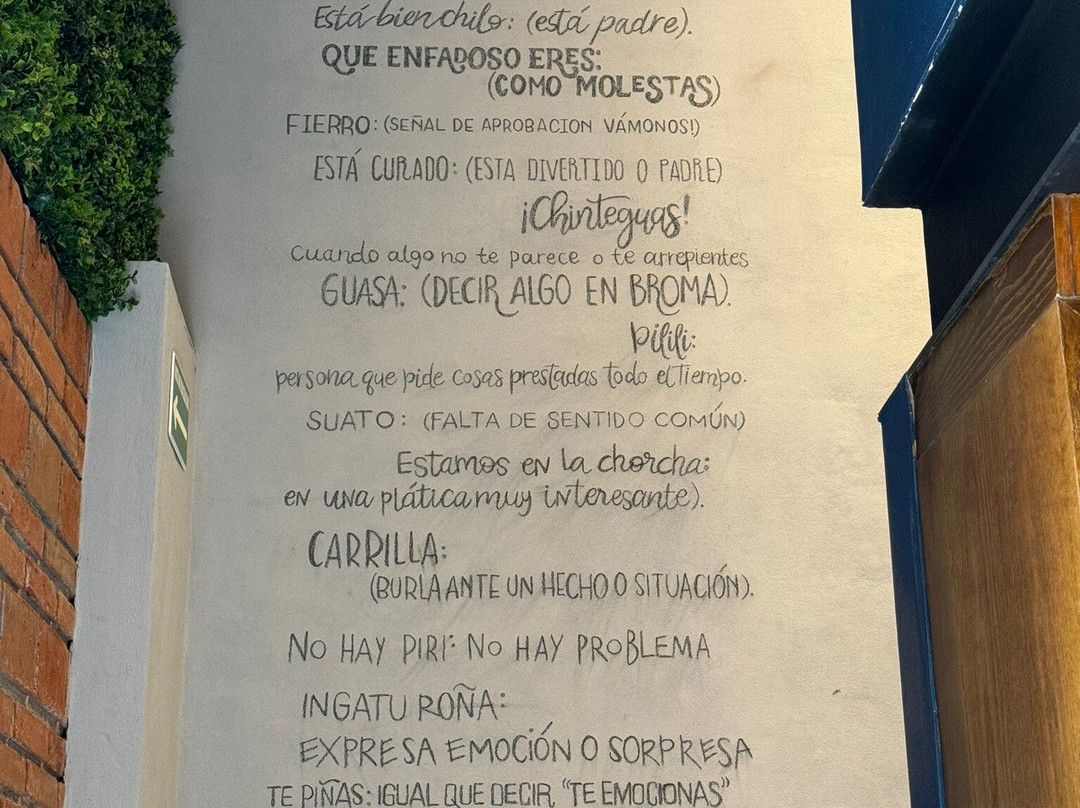 Está bien chilo: (está padre).
QUE ENFADOSO ERES:
(COMO MOLESTAS)
FIERRO: (SEÑAL DE APROBACION VÁMONOS!)
ESTÁ CURADO: (ESTA DIVERTIDO O PADRE)
¡Chinteguas!
Cuando algo no te parece o te arrepientes
GUASA: (DECIR ALGO EN BROMA).
Pilili:
persona que pide cosas prestadas todo el Tiempo.
SUATO: (FALTA DE SENTIDO COMÚN)
Estamos en la chorcha:
en una plática muy interesante).
CARRILLA:
(BURLA ANTE UN HECHO O SITUACIÓN).
NO HAY PIRI: NO HAY PROBLEMA
INGATU ROÑA:
EXPRESA EMOCIÓN O SORPRESA
TE PIÑAS: IGUAL QUE DECIR "TE EMOCIONAS"